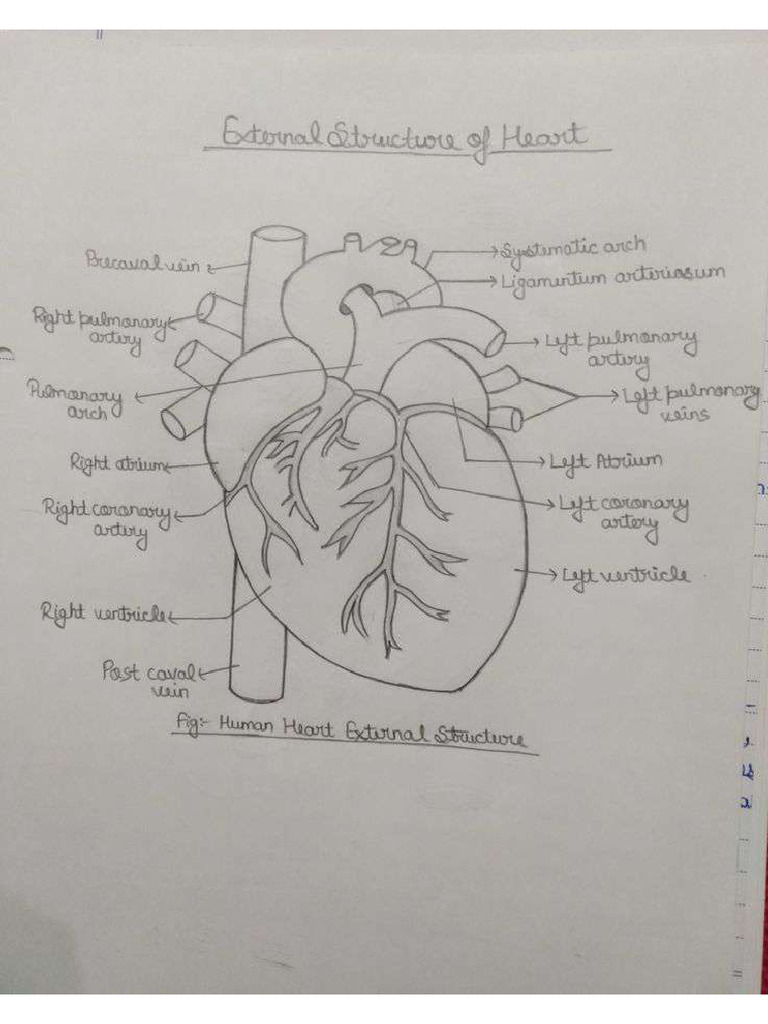 External Structure of Heart
Precaval vein
Systematic arch
Ligamentum arteriosum
Right pulmonary
artery
Left pulmonary
artery
Pulmonary
arch
Left pulmonary
veins
Right atrium
Left Atrium
Right coronary
artery
Left coronary
artery
Left ventricle
Right ventricle
Post caval
vein
Fig:- Human Heart External Structure